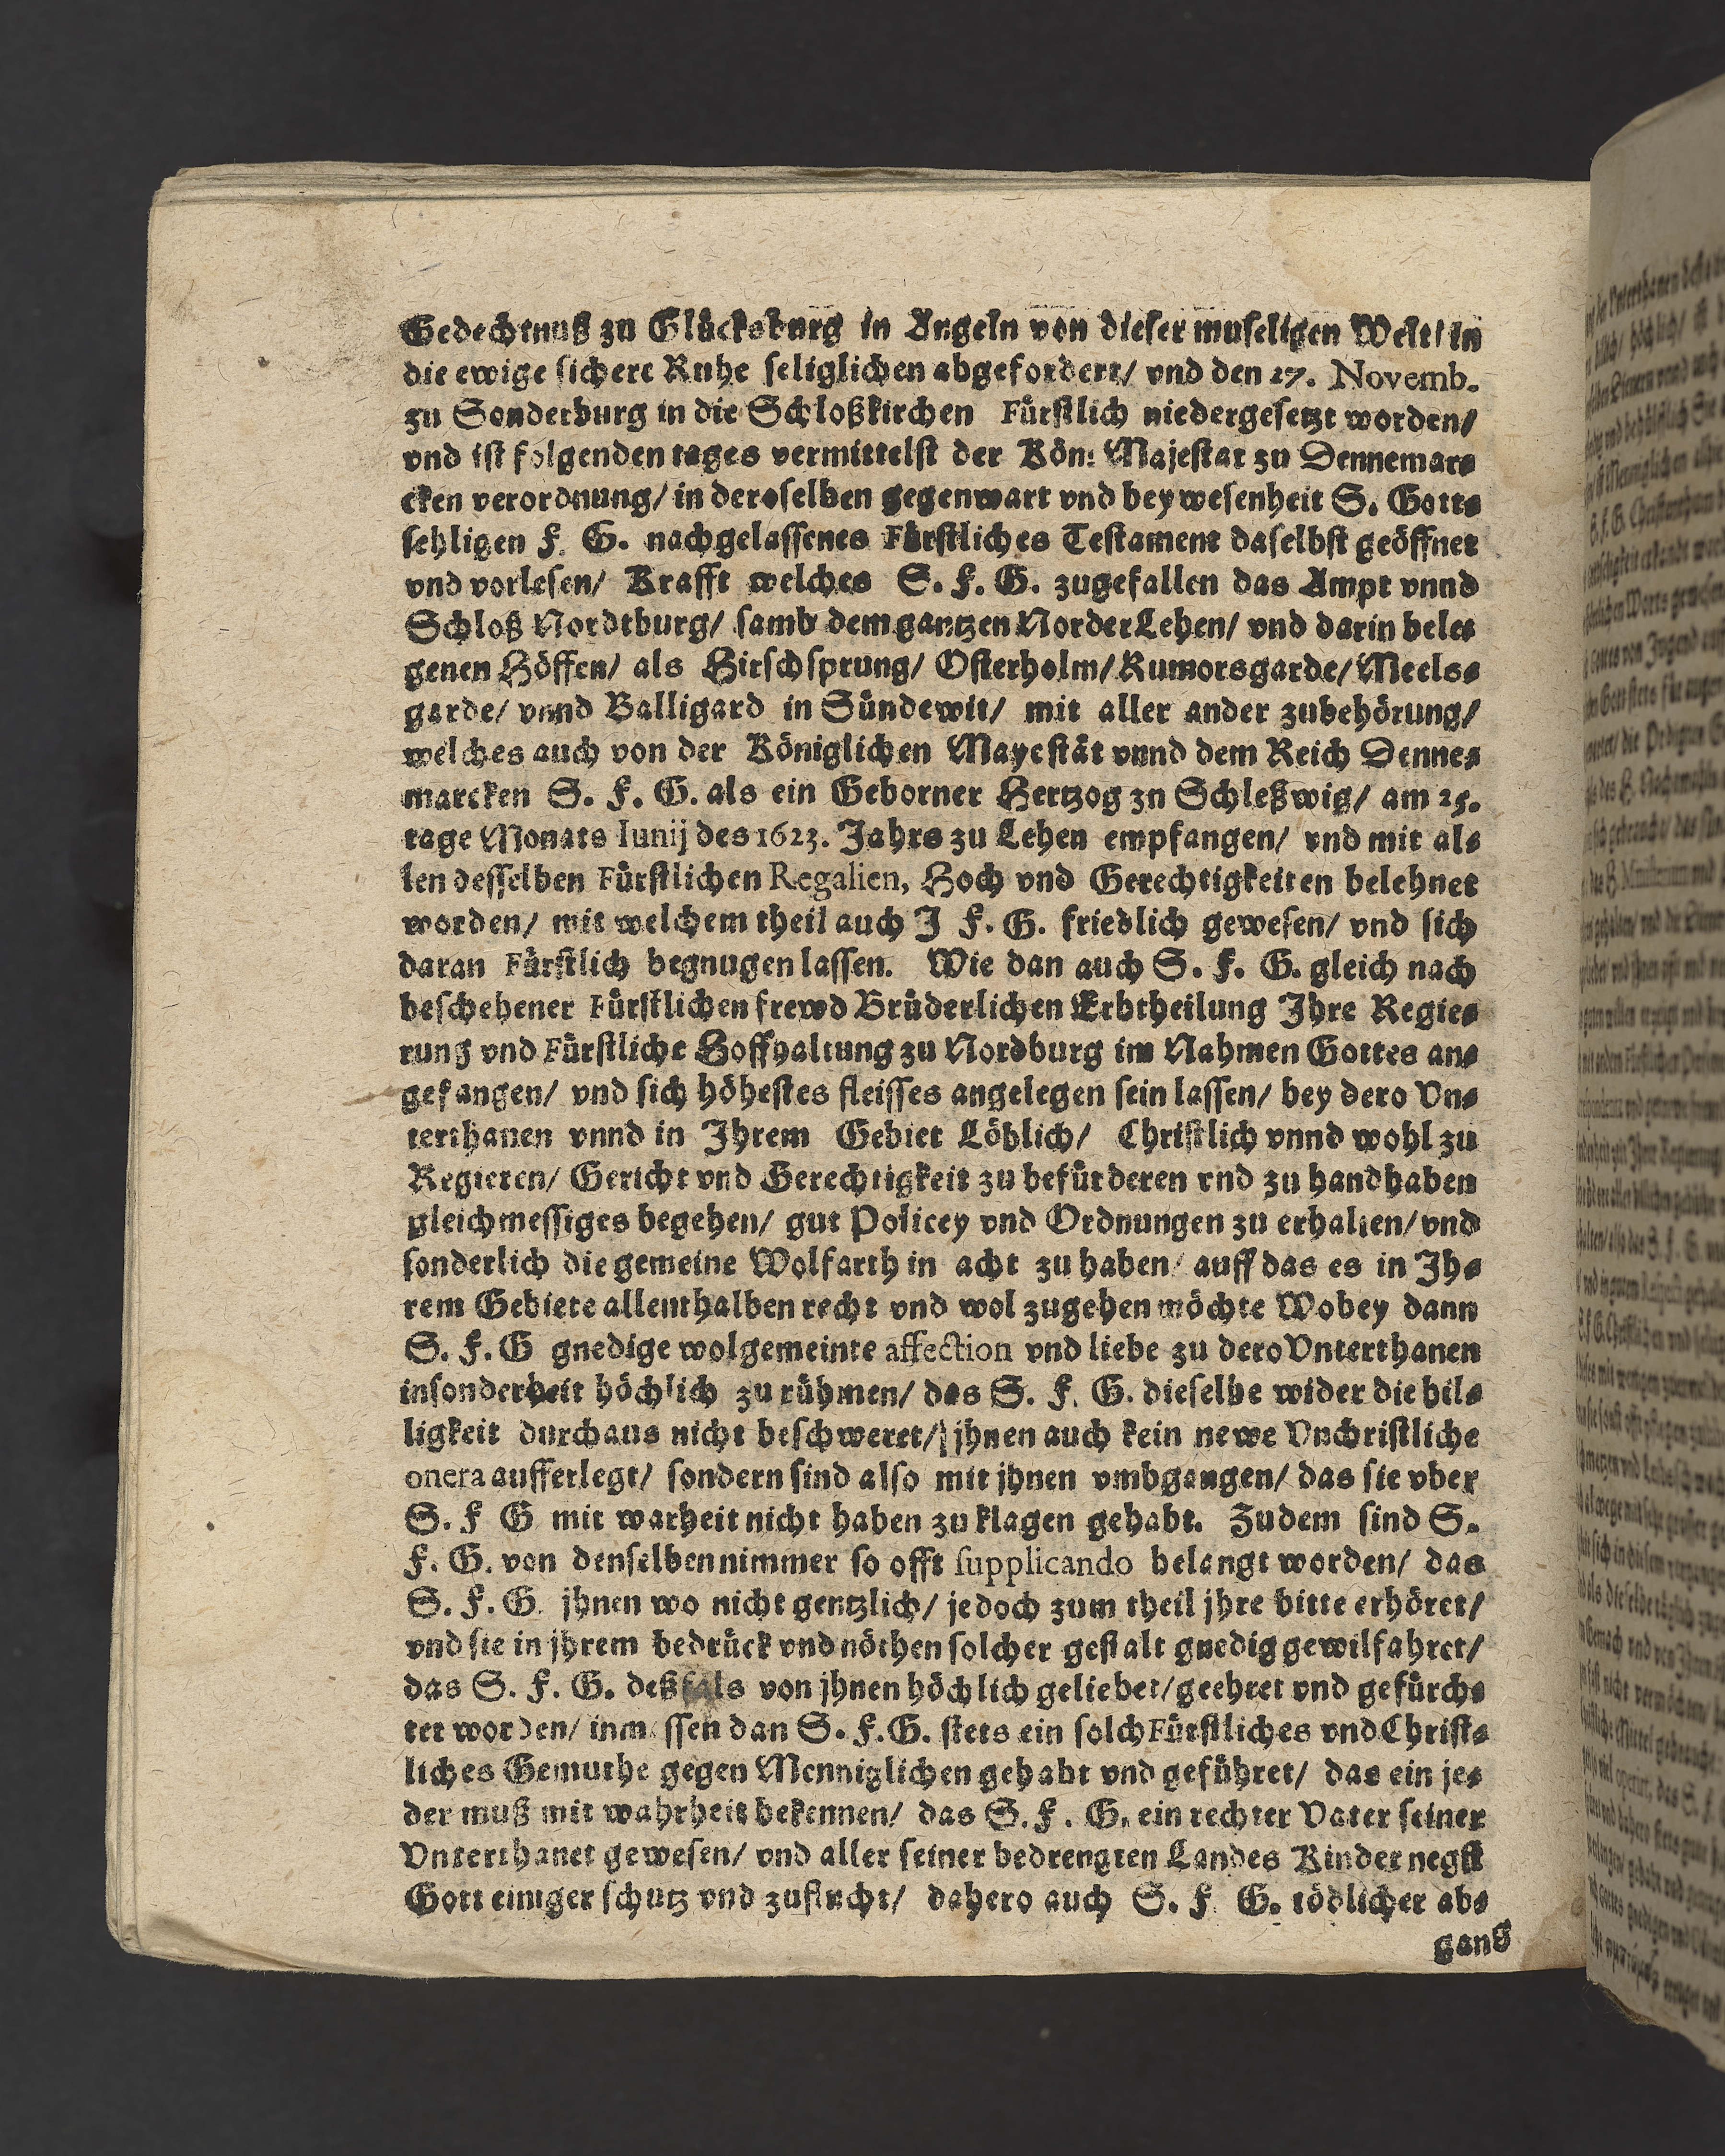 Gedechtnuß zu Glücksburg in Angeln von dieser museligen Welt/ in
die ewige sichere Ruhe seliglichen abgefordert/ vnd den 27. Novemb.
zu Sonderburg in die Schloßkirchen Fürstlich niedergesetzt worden/
vnd ist folgenden tages vermittelst der Kön: Majestat zu Dennemar-
cken verordnung/ in deroselben gegenwart vnd beywesenheit S. Gott-
sehligen F. G. nachgelassenes Fürstliches Testament daselbst geöffnet
vnd vorlesen/ Krafft welches S. F. G. zugefallen das Ampt vnnd
Schloß Nordtburg/ sambt dem gantzen NorderLehen/ vnd darin bele-
genen Höffen/ als Hirschsprung/ Osterholm/ Rumorsgarde/ Meels-
garde/ vnnd Balligard in Sündewit/ mit aller ander zubehörung/
welches auch von der Königlichen Mayestät vnnd dem Reich Denne-
marcken S. F. G. als ein Geborner Hertzog zn Schleßwig/ am 25.
tage Monats Iunij des 1623. Jahrs zu Lehen empfangen/ vnd mit al-
len desselben Fürstlichen Regalien, Hoch vnd Gerechtigkeiten belehnet
worden/ mit welchem theil auch J F. G. friedlich gewesen/ vnd sich
daran Fürstlich begnugen lassen. Wie dan auch S. F. G. gleich nach
beschehener Fürstlichen frewd Brüderlichen Erbtheilung Jhre Regie-
rung vnd Fürstliche Hoffhaltung zu Nordburg im Nahmen Gottes an-
gefangen/ vnd sich höhestes fleisses angelegen sein lassen/ bey dero Vn-
terthanen vnnd in Jhrem Gebiet Löblich/ Christlich vnnd wohl zu
Regieren/ Gericht vnd Gerechtigkeit zu befürderen vnd zu handhaben
gleichmessiges begehen/ gut Policey vnd Ordnungen zu erhalten/ vnd
sonderlich die gemeine Wolfarth in acht zu haben/ auff das es in Jh-
rem Gebiete allenthalben recht vnd wol zugehen möchte Wobey dann
S. F. G gnedige wolgemeinte affection vnd liebe zu dero Vnterthanen
insonderheit höchlich zu rühmen/ das S. F. G. dieselbe wider die bil-
ligkeit durchaus nicht beschweret/ jhnen auch kein newe Vnchristliche
onera aufferlegt/ sondern sind also mit jhnen vmbgangen/ das sie vber
S. F G mit warheit nicht haben zu klagen gehabt. Zudem sind S.
F. G. von denselben nimmer so offt supplicando belangt worden/ das
S. F. G. jhnen wo nicht gentzlich/ jedoch zum theil jhre bitte erhöret/
vnd sie in jhrem bedrück vnd nöthen solcher gestalt gnedig gewilfahret/
das S. F. G. deßfals von jhnen höchlich geliebet/ geehret vnd gefürch-
tet worden/ inmassen dan S. F. G. stets ein solch Fürstliches vnd Christ-
liches Gemuthe gegen Menniglichen gehabt vnd geführet/ das ein je-
der muß mit wahrheit bekennen/ das S. F. G. ein rechter Vater seiner
Vnterthanet gewesen/ vnd aller seiner bedrengten Landes Kinder negst
Gott einiger schutz vnd zuflucht/ dahero auch S. F G. tödlicher ab-
gang